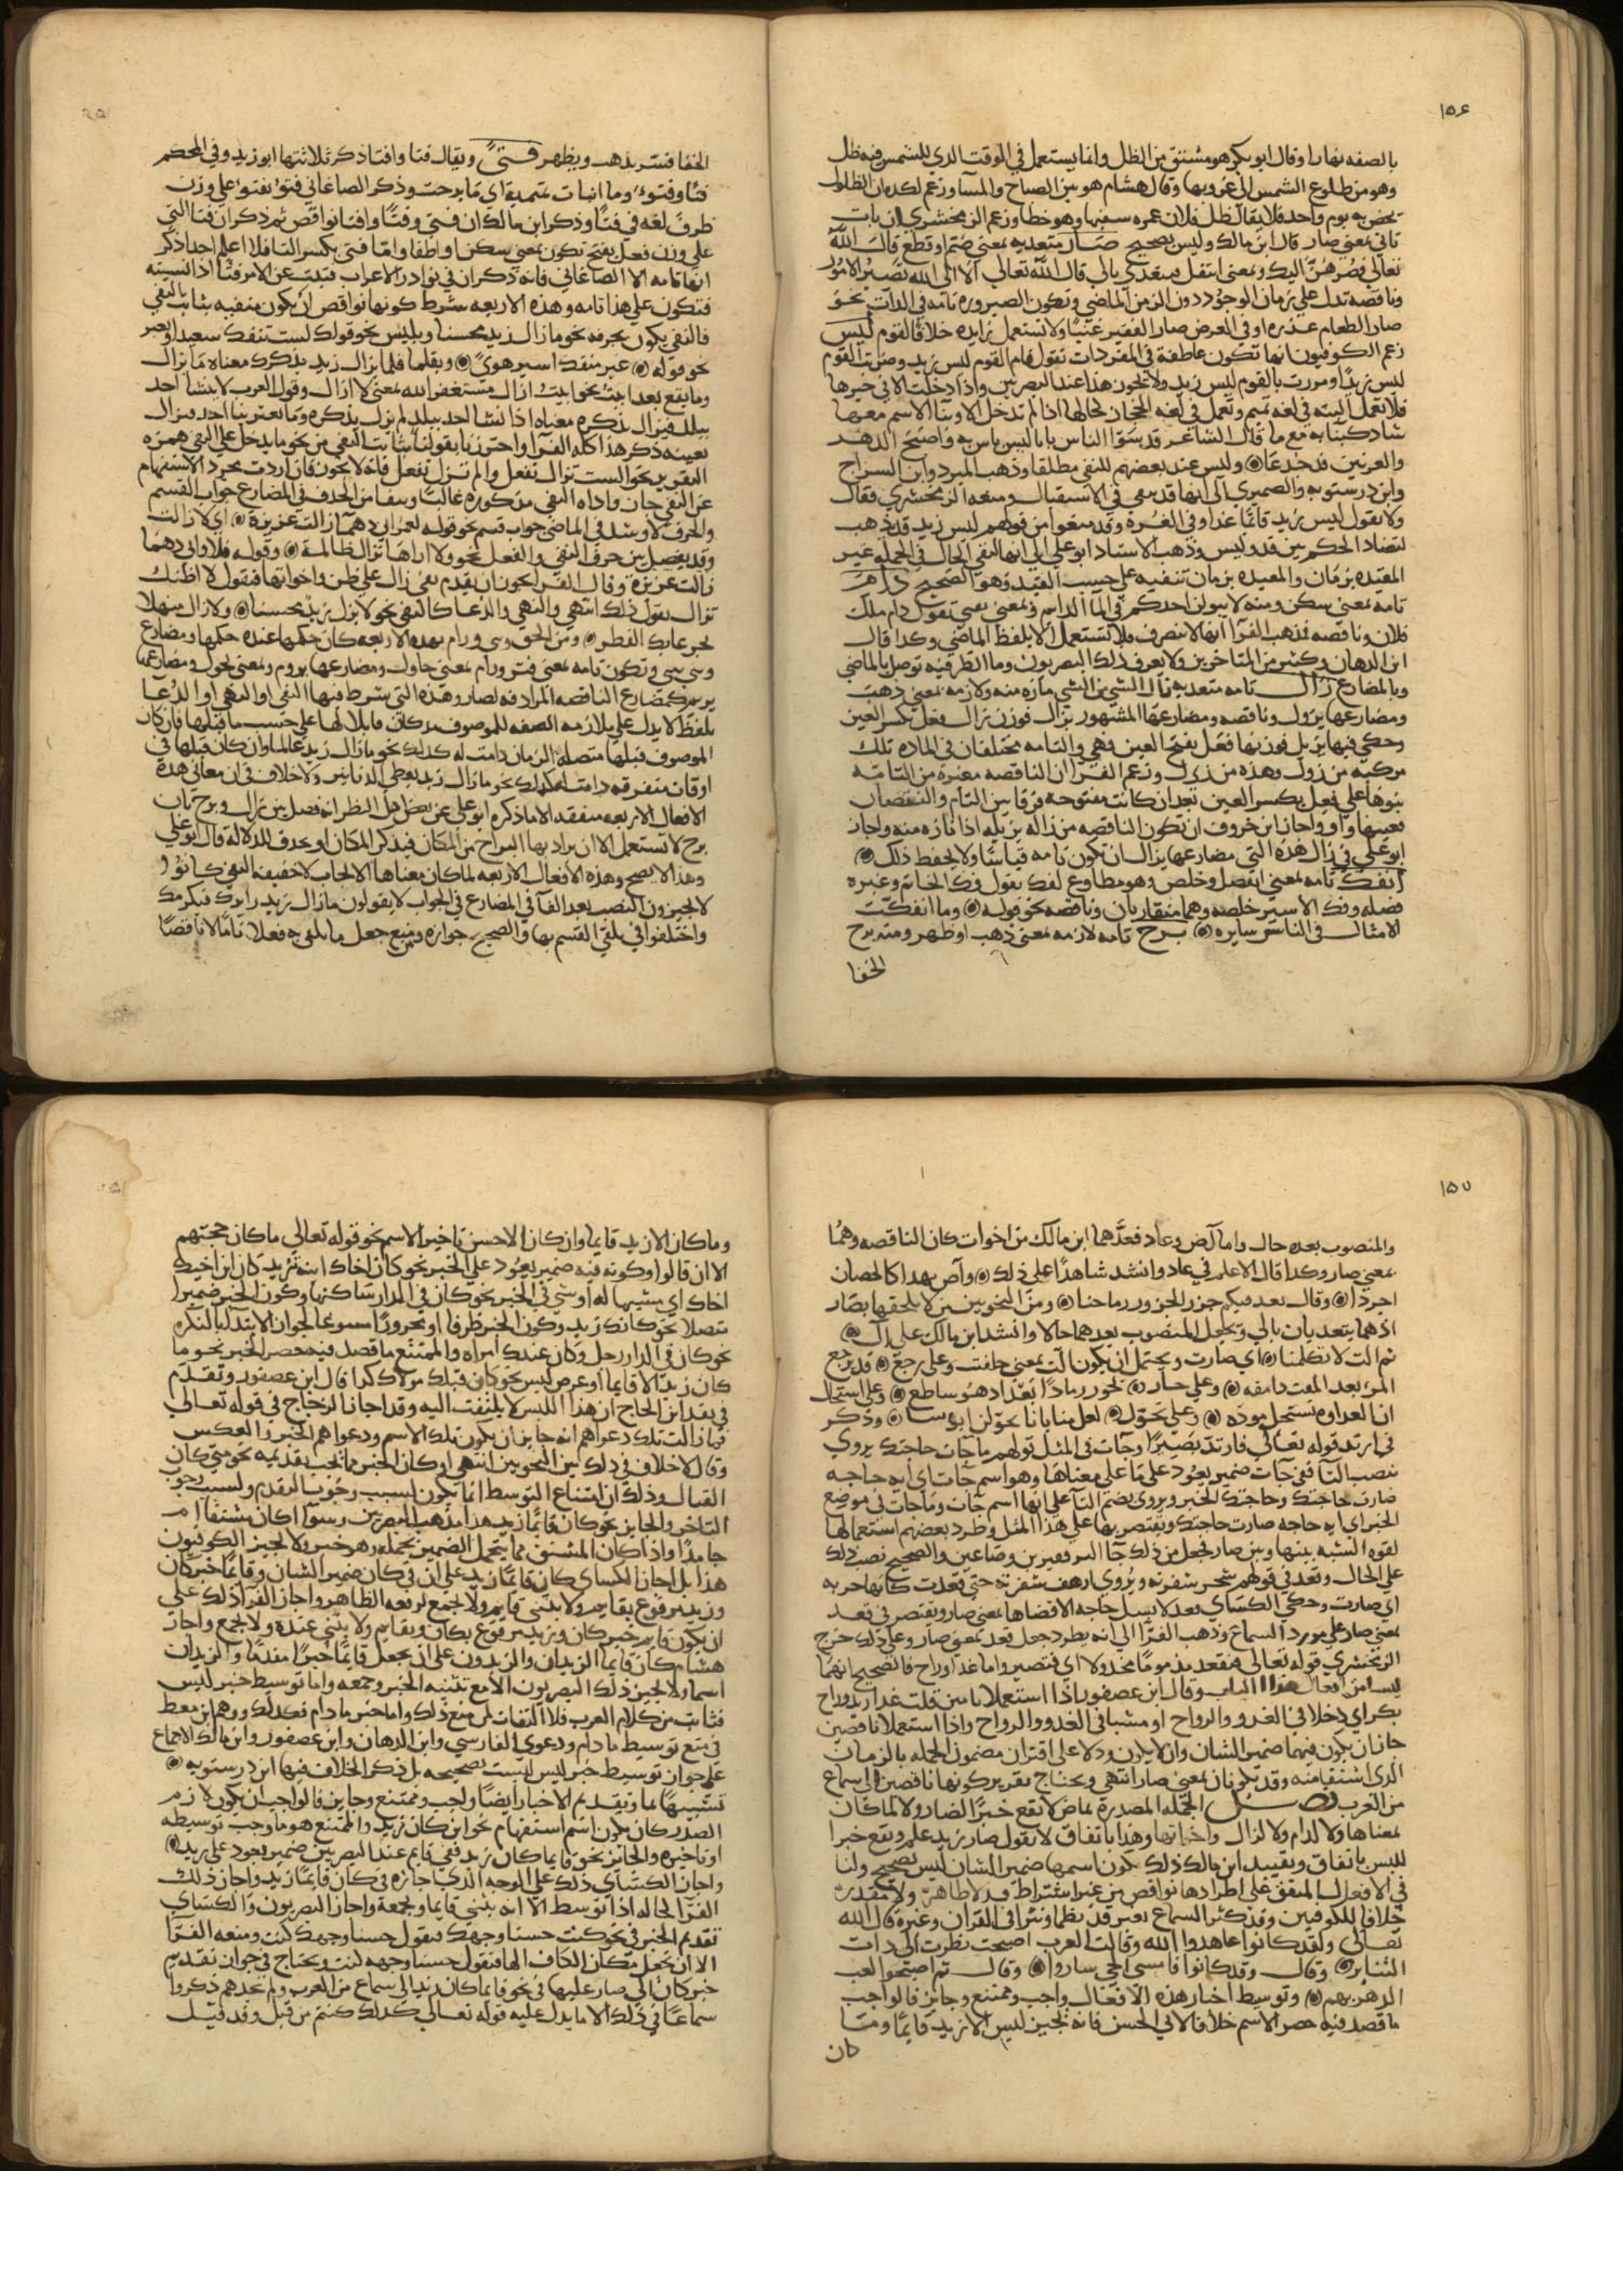 ١٥٦
بالصفه نهارا وقال ابو بكر هو مشتق من الظل وانما يستعمل في الوقت الذي للشمس فيه ظل
وهو من طلوع الشمس الى غروبها وقال هشام هو بين الصباح والمسآ وزعم لكده ان الظلول
يختص به يوم واحد فلا يقال ظل فلان عمره سفيها وهو خطا وزعم الزمخشري ان بات
تاتي بمعني صار قال ابن مالك وليس بصحيح صــار متعديه بمعني ضم او قطع قال الله
تعالي فصُرهُنّ اليك وبمعني انتقل فيتعدي بالي قال الله تعالي الا الى الله تَصيرُ الامُور
وناقصه تدل علي زمان الوجود دون الزمن الماضي وتكون الصيروره تامه في الذات نحو
صار الطعام عذره او في العرض صار الفقير غنيًّا ولا تستعمل زايده خلافا لقوم ليس
زعم الكوفيون انها تكون عاطفة في المفردات تقول قام القوم ليس زيد وضربت القوم
ليس زيدًا ومررت بالقوم ليس زيد ولا يجوز هذا عند البصريين واذا دخلت الا في خبرها
فلا تعمل البته في لغه تميم وتعمل في لغه الحجاز بحالها اذا لم تدخل الا وبنآ الاسم معها
شاد كبنآيه مع ما قال الشاعر قد سَوّا الناس ياما ليس باس به واصبح الدهــر
والعرنين قد جدعا وليس عند بعضهم للنفي مطلقا وذهب المبرد وابن السراج
وابن درستويه والصميري الى انها قد ينفى في الاستقبال ومنعه الزمخشري فقال
ولا تقول ليس زيد قائما غدا وفي الغره وقد منعوا من قولهم ليس زيد قد ذهب
لتضاد الحكم بين قد وليس وذهب الاستاد ابو علي الي انها لنفي الحال في الجمله غير
المقيده بزمان والمقيده بزمان تنفيه علي حسب القيد وهو الصحيح دام
تامه بمعني سكن ومنه لا يبولن احدكم في المآ الدايم وبمعني بقي تقول دام ملك
فلان وناقصه فذهب الفرآ انها لا تتصرف فلا تستعمل الا بلفظ الماضي وكدا قال
ابن الدهان وكثير من المتاخرين ولا يعرف ذلك البصريون وما الظرفيه توصل بالماضي
وبالمضارع زال تامه متعديه زال الشي من الشي مازه منه ولازمه بمعني ذهب
ومضارعها يزول وناقصه ومضارعها المشهور يزال فوزن زال فعل بكسر العين
وحكي فيها يزيل فوزنها فعَل بفتح العين فهي والتامه مختلفان في الماده تلك
مركبه من زول وهذه من زيل وزعم الفرآ ان الناقصه مغيرة من التامّه
بنوها علي فعِل بكسر العين بعد ان كانت مفتوحة فرقا بين التام والنقصان
فعينها واو واجاز ابن خروف ان تكون الناقصه من زاله يزيله اذا مازه منه واجاز
ابو علي في زال هذه التي مضارعها يزال ان تكون تامه قياسًا ولا يحفظ ذلك
انفك تامه بمعني انفصل وخلص وهو مطاوع لفك يقول فك الخاتم وغيره
فصله وفك الاسير خلصه وهما متقاربان وناقصه نحو قوله وما انفكت
الامثال في الناس سايره برح تامه لازمه بمعني ذهب او ظهر ومنه برح
الخفا
الخفا فسّر بذهب وبظهر فتئ ويقال فتا وافتا ذكر ثلاثتها ابو زيد وفي المحكم
علي وزن فعل بفتح تكون بمعني سكن واطفا واما فتى بكسر التا فلا اعلم احدا ذكر
انها تامه الا الصاغاني فانه ذكر ان في نوادر الاعراب فتيت عن الامر فتئًا اذا نسيته
فتكون علي هذا تامه وهذه الاربعه شرط كونها نواقص ان يكون منفيه بثابت النفي
فالنفي يكون بحرفه نحو ما زال زيد محسنا وبليس نحو قولك لست تنفك سعيدا وبغير
نحو قوله غير منفك اسير هوًى وبقلما قلما يزال زيد يذكرك معناه ما يزال
ببلد فيزال يذكره معناه اذا نشا احد ببلد لم يزل يذكره وما يعتريبا احد فيزال
نعينه ذكر هذا كله الفرآ واحترزنا بقولنا بثابت النفي من نحو ما يدخل علي النفي همزه
التقرير نحو الست تزال تفعل والم تزل تفعل فانه لا يجوز فان اردت مجرد الاستفهام
عن النفي جاز واداه النفي مذكوره غالبًا وينقاس الحذف في المضارع جواب القسم
والحرف لا وشد في الماضي جواب قسم نحو قوله لعمر ابي دهمآ زالت عزيزة اي لا زالت
وقد يفصل بين حرف النفي والفعل نحو ولا اراها تزال ظالمة وقوله فلا وابي دهما
زالت عزيزة وقال الفرآ يجوز ان يقدم نفي زال علي ظن واخواتها فتقول لا اظنك
تزال تقول ذلك انتهي والنهي والدعا كالنفي نحو لا يزل زيد محسنا ولا زال منهلا
بجرعائك القطر ومن الحق وني ورام بهذه الاربعه كان حكمها عنده حكمها ومضارع
وني يني وتكون تامه بمعني فتر ورام بمعني حاول ومضارعها يروم وبمعني تحول ومضارعها
يريم كمضارع الناقصه المرادفه لصار وهذه التي شرط فيها النفي او النهي او الدُعا
بلفظ لا يدل علي ملازمه الصفه للموصوف مذ كان قابلا لها علي حسب ما قبلها فان كان
الموصوف قبلها متصلة الزمان دامت له كدلك نحو ما زال زيد عالما وان كان قبلها في
اوقات متفرقه دامت له كدلك نحو ما زال زيد يعطي الدنانير ولا خلاف في ان معاني هذه
الافعال الاربعه متفقه الا ما ذكره ابو علي عن بعض اهل النظر انه فصل بين زال وبرح بان
برح لا تستعمل الا ان يراد بها البراح من المكان فيذكر المكان او يحذف للدلاله قال ابو علي
وهذا لا يصح وهذه الافعال الاربعه لما كان معناها الايجاب لا حقيقة النفي كانوا
لا يجيزون النصب بعد الفآ في المضارع في الجواب لا يقولون ما زال زيد زايرك فيكرمك
واختلفوا في تلقي القسم بها والصحيح جوازه ومنع جعل ما يلغي به فعلا تامًا لا ناقصًا
١٥٧
والمنصوب بعده حال واما آض وعاد فعدَّهما ابن مالك من اخوات كان الناقصه وهُما
بمعني صار وكدا قال الاعلم في عاد وانشد شاهدًا علي ذلك وآض نهدا كالحصان
اجردا وقال تعد فيكم جزر الجزور رماحنا ومن النحويين من لا يلحقها بصَار
اذ هما يتعديان بالي ويجعل المنصوب بعدهما حالا وانشد ابن مالك علي ال
ثم الت لا تكلمنا اي صارت ويحتمل ان يكون الت بمعني حلفت وعلي رجع قد يرجع
المرء بعد المقت ذا مقه وعلي حار يحور رمادًا بَعْدَ اذ هُو ساطع وعلي استحال
ان العداوه تستحيل موده وعلي تحوّل لعل منايانا تحوّلن ابؤسا وذكر
في ارتد قوله تعالي فارتدّ بَصيرًا وجآت في المثل قولهم ما جآت حاجتك يروي
بنصب التآ ففي جآت ضمير يعُود علي مَا علي معناهَا وهو اسم جآت اي ايه حاجه
صارت حاجتك وحاجتك الخبر ويروي بضم التآ علي انها اسم جآت ومَا جات في موضع
الخبر اي ايه حاجه صارت حاجتك ويقتصر بها علي هذا المثل وطرد بعضهم استعمالها
لقوه الشبه بينها وبين صار فجعل من ذلك جآ البر قفيزين وصاعين والصحيح نصب ذلك
علي الحال وقعد في قولهم شحر شفرته ويُروي ارهف شفرته حتي قعدت كانها حربه
اي صارت وحكي الكسَاي قعد لا يسل حاجه الا قضاها بمعني صار ويقتصر في قعد
بمعني صار علي مورد السماع وذهب الفرّا الي انه يطرد جعل قعد بمعني صار وعلي ذلك خرج
الزمخشري قوله تعالي فتقعد مذمومًا مخذولا اي فتصير واما غدا وراح فالصحيح انهما
ليسا من افعال هذا الباب وقال ابن عصفور اذا استعملا تامين قلت غدا زيد وراح
بكر اي دخلا في الغدو والرواح او مشيا في الغدو والرواح واذا استعملا ناقصين
جاز ان يكون فيهما ضمير الشان وان لا يكون ودلا علي اقتران مضمون الجمله بالزمان
الذي اشتقا منه وقد يكونان بمعني صار انتهي ويحتاج تقرير كونها ناقصين الي سماع
من العرب فصــل الجمله المصدرة بماض لا تقع خبرًا لصار ولا لما كان
بمعناها ولا لدام ولا لزال واخواتها وهذا باتفاق لا تقول صار زيد علم ويقع خبرا
لليس باتفاق وتقييد ابن مالك ذلك بكون اسمها ضمير الشان ليس بصحيح ولنا
في الافعال المتفق علي اطرادها نواقص من غير اشتراط قد لا ظاهرة ولا مقدره
خلافا للكوفيين وقد كثر السماع بغير قد نظما ونثرا في القران وغيره قال الله
تعالى ولقد كانوا عاهدوا الله وقالت العرب اصبحت نظرت الى ذات
التنانير وقال وقد كانوا فامسي الحي ساروا وقال ثم اصبحوا لعب
الدهر بهم وتوسيط اخبار هذه الافعال واجب وممتنع وجايز فالواجب
ما قصد فيه حصر الاسم خلافا لابي الحسن فانه يجيز ليس الا زيد قايمًا وما
كان
وما كان الا زيد قايما وان كان الاحسن تاخير الاسم نحو قوله تعالي ما كان حجتهم
الا ان قالوا وكونه فيه ضمير يعُود علي الخبر نحو كان اخاك ابنه زيد كان ابن اخيك
اخاك اي شبيها له او شي في الخبر نحو كان في الدار ساكنها وكون الخبر ضميرا
متصلا نحو كانك زيد وكون الخبر ظرفا او مجرورًا مسوغا لجواز الابتدا بالنكره
نحو كان في الدار رجل وكان عندك امراه والممتنع ما قصد فيه حصر الخبر نحو ما
كان زيد الا قايما او عرض لبس نحو كان فتاك مولاك كدا قال ابن عصفور وتقدم
في نقد ابن الحاج ان هذا اللبس لا يلتفت اليه وقد اجاز الزجاج في قوله تعالي
فما زالت تلك دعواهم انه جايز ان يكون تلك الاسم ودعواهم الخبر والعكس
وقال لا خلاف في ذلك بين النحويين انتهي او كان الخبر مما يجب تقديمه نحو متي كان
القتال وذلك ان امتناع التوسط انما يكون لسبب وجُوب التقدم ولسبب وجوب
التاخر والجايز نحو كان قايمًا زيد هذا مذهب البصريين وسوآ اكان مشتقا ام
جامدًا واذا كان المشتق مما يتحمل الضمير بجملته هو خبر ولا يجيز الكوفيون
هذا بل اجاز الكساي كان قايمًا زيد علي ان في كان ضمير الشان وقايمًا خبر كان
وزيد مرفوع بقايم ولا يثني قايم ولا يجمع لرفعه الظاهر واجاز الفرآ ذلك علي
ان يكون قايم خبر كان وزيد مرفوع بكان وبقايم ولا يثني عنده ولا يجمع واجاز
هشام كان قايما الزيدان والزيدون علي ان يجعل قايمًا خبرًا مقدمًا والزيدان
اسما ولا يجيز ذلك البصريون الا مع تثنيه الخبر وجمعه واما توسيط خبر ليس
فثابت من كلام العرب فلا التفات لمن منع ذلك واما خبر ما دام فكدلك ووهم ابن معط
في منع توسيط ما دام ودعوي الفارسي وابن الدهان وابن عصفور وابن مالك الاجماع
علي جواز توسيط خبر ليس ليست بصحيحه بل ذكر الخلاف فيها ابن درستويه
تشبيهًا بما وتقديم الاخبار ايضًا واجب وممتنع وجايز فالواجب ان يكون لازم
الصدر كان يكون اسم استفهام نحو اين كان زيد والممتنع هو ما وجب توسيطه
او تاخيره والجايز نحو قايما كان زيد ففي قايم عند البصريين ضمير يعود علي زيد
واجاز الكسَاي ذلك علي الوجه الذي اجازه في كان قايمًا زيد واجاز ذلك
الفرّا لحاله اذا توسط الا انه يثني قايما ويجمعه واجاز البصريون والكسَاي
تقديم الخبر في نحو كنت حسنا وجهك فتقول حسنا وجهك كنت ومنعه الفرّا
الا ان تجعل مكان الكاف الها فتقول حسنا وجهه كنت ويحتاج في جواز تقديم
خبر كان الي صار عليها في نحو قايما كان زيد الي سماع من العرب ولم نجدهم ذكروا
سماعًا في ذلك الا ما يدل عليه قوله تعالي كذلك كنتم من قبل وقد قيل